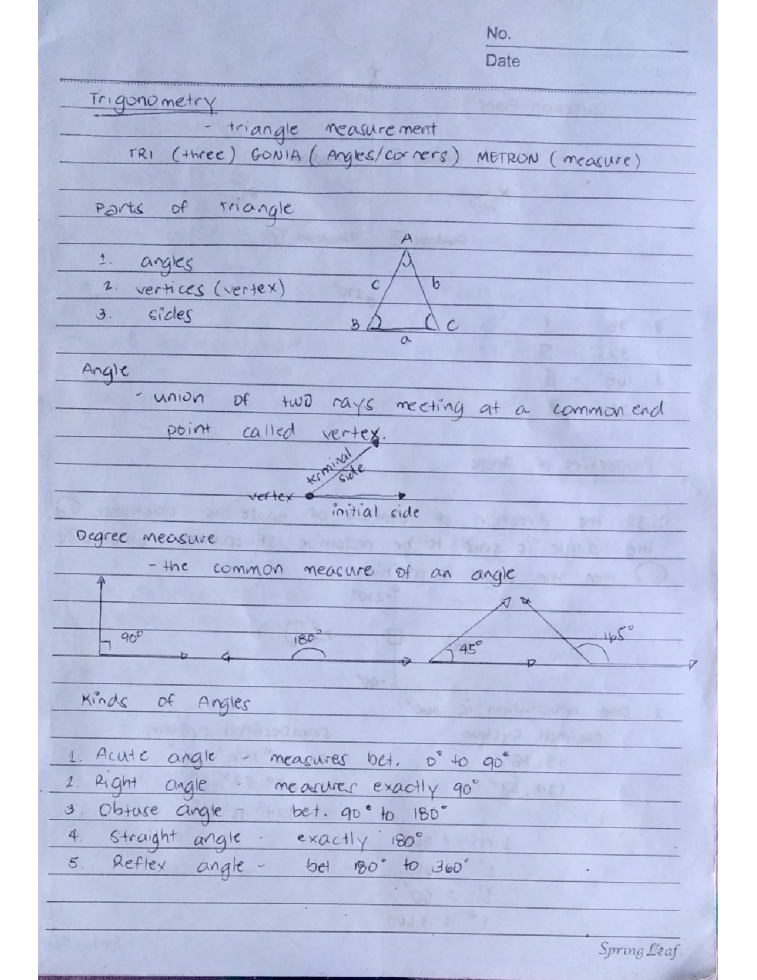 No.
Date
Trigonometry
- triangle measurement
TRI (three) GONIA (Angles/corners) METRON (measure)
Parts of triangle
1. angles
2. vertices (vertex)
3. sides
A
c b
B C
a
Angle
- union of two rays meeting at a common end
point called vertex.
terminal
side
vertex
initial side
Degree measure
- the common measure of an angle
90° 180° 45° 165°
Kinds of Angles
1. Acute angle - measures bet. 0° to 90°
2. Right angle - measures exactly 90°
3 Obtuse angle - bet. 90° to 180°
4. Straight angle - exactly 180°
5. Reflex angle - bet 180° to 360°
Spring Leaf